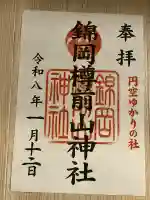 奉拝
円空ゆかりの社
錦岡樽前山神社
錦岡
神社
令和八年一月十二日